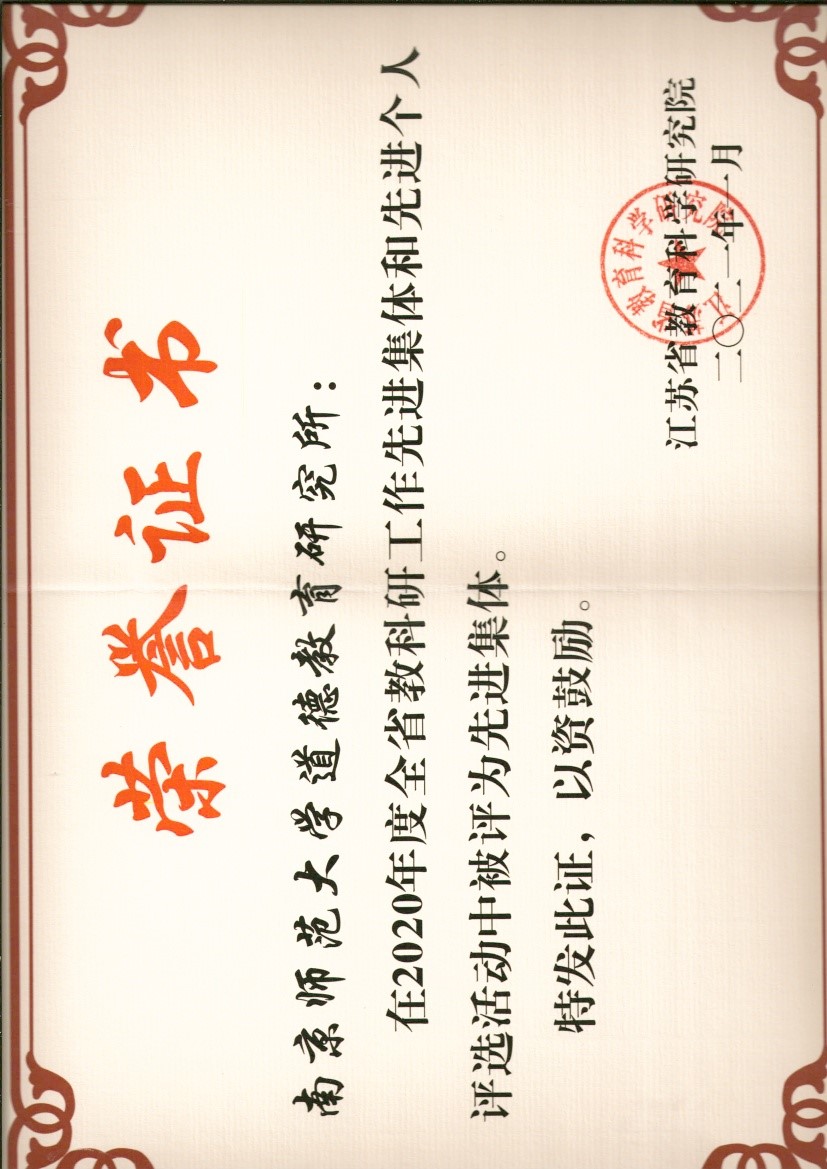 荣誉证书
南京师范大学道德教育研究所：
在2020年度全省教科研工作先进集体和先进个人
评选活动中被评为先进集体。
特发此证，以资鼓励。
江苏省教育科学研究院
江苏省教育科学研究院
二〇二一年一月